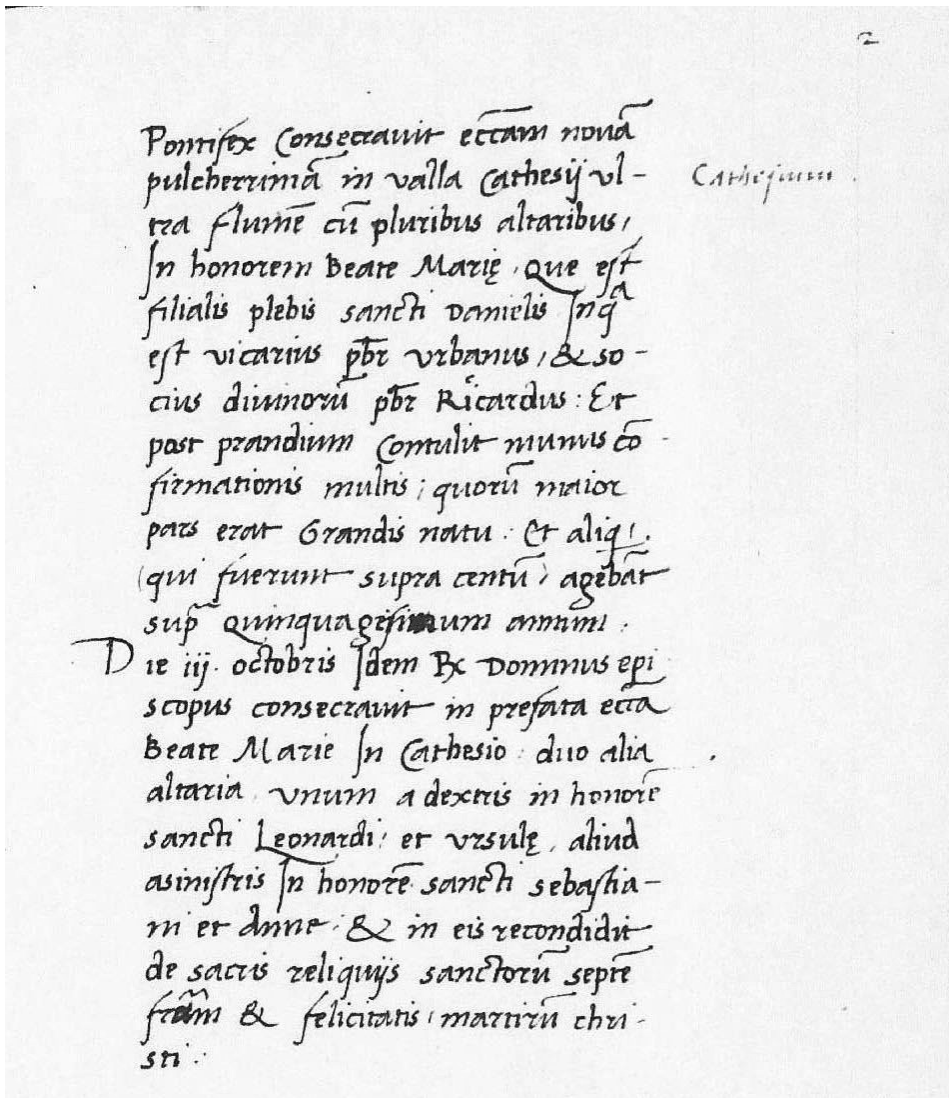 2
Pontifex Consecrauit eccãm nouã
pulcherrimã in valla Cathesij vl-
Cathesium
tra flumẽ cũ pluribus altaribus,
In honorem Beate Marię. Que est
filialis plebis sancti Danielis In q̃a
est vicarius pb̃r vrbanus, & so-
cius diuinorũ pb̃r Ricardus: Et
post prandium Contulit munus cõ-
firmationis multis; quorũ maior
pars erat Grandis natu. Et aliq.
(qui fuerunt supra centũ) agebãt
sup̃ Quinquagesimum annum.
Die iij. octobris Idem Rx Dominus epi
scopus consecrauit in prefata ecc̃a
Beate Marie In Cathesio: duo alia
altaria, vnum a dextris in honorẽ
sancti Leonardi, et vrsulę, aliud
asinistris In honorẽ sancti sebastia-
ni et Anne. & in eis recondidit
de sacris reliquijs sanctorũ septẽ
fratm̃ & felicitatis, martirũ chri-
sti.